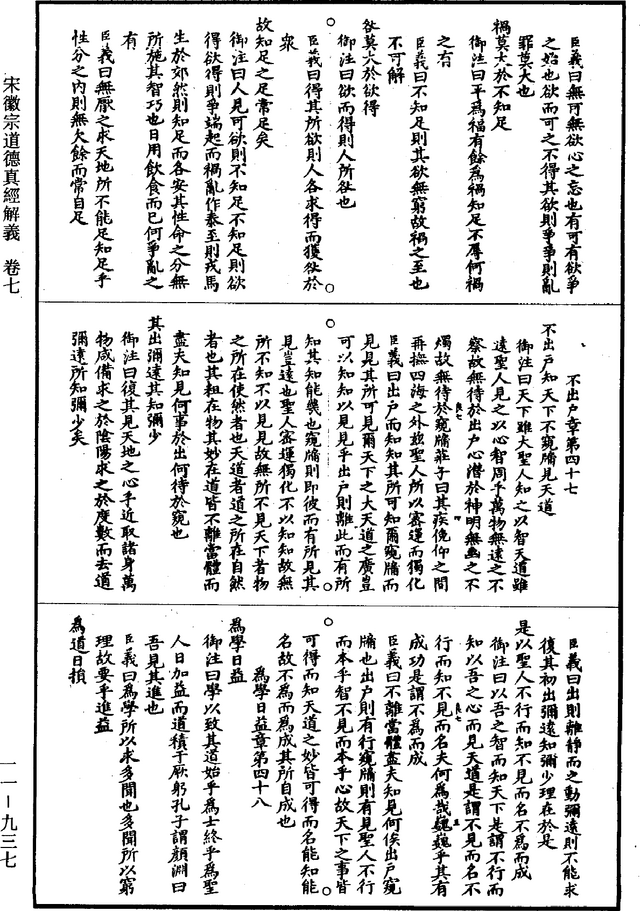 臣義曰無可無欲心之忘也有可有欲爭
之始也欲而可之不得其欲則爭爭則亂
罪莫大也
禍莫大於不知足
御注曰平為福有餘為禍知足不辱何禍
之有
臣義曰不知足則其欲無窮故禍之至也
不可解
咎莫大於欲得
御注曰欲而得則人所咎也
臣義曰得其所欲則人各求得而獲咎於
衆
故知足之足常足矣
御注曰人見可欲則不知足不知足則欲
得欲得則爭端起而禍亂作泰至則戎馬
生於郊然則知足而各安其性命之分無
所施其智巧也日用飲食而已何爭亂之
有
臣義曰無厭之求天地所不能足知足乎
性分之內則無欠餘而常自足
不出戶章第四十七
不出戶知天下不窺牖見天道
御注曰天下雖大聖人知之以智天道雖
遠聖人見之以心智周乎萬物無遠之不
察故無待於出戶心潛於神明無幽之不
燭故無待於窺牖莊子曰其疾俛仰之間
再撫四海之外故聖人所以密運而獨化
臣義曰出戶而知知其所可知爾窺牖而
見見其所可見爾天下之大天道之廣豈
可以知知以見見乎出戶則離此而有所
知其知能幾也窺牖則即彼而有所見其
見豈遠也聖人密運獨化不以知知故無
所不知不以見見故無所不見天下者物
之所在使然者也天道者道之所在自然
者也其粗在物其妙在道皆不離當體而
盡夫知見何事於出何待於窺也
其出彌遠其知彌少
御注曰復其見天地之心乎近取諸身萬
物咸備求之於陰陽求之於度數而去道
彌遠所知彌少矣
臣義曰出則離靜而之動彌遠則不能求
復其初出彌遠知彌少理在於是
是以聖人不行而知不見而名不為而成
御注曰以吾之智而知天下是謂不行而
知以吾之心而見天道是謂不見而名不
行而知不見而名夫何為哉巍巍乎其有
成功是謂不為而成
臣義曰不離當體盡夫知見何俟出戶窺
牖也出戶則有行窺牖則有見聖人不行
而本乎智不見而本乎心故天下之事皆
可得而知天道之妙皆可得而名能知能
名故不為而為成其所自成也
為學日益章第四十八
為學日益
御注曰學以致其道始乎為士終乎為聖
人日加益而道積于厥躬孔子謂顏淵曰
吾見其進也
臣義曰為學所以求多聞也多聞所以窮
理故要乎進益
為道日損
宋徽宗道德真經解義　卷七
一一－九三七